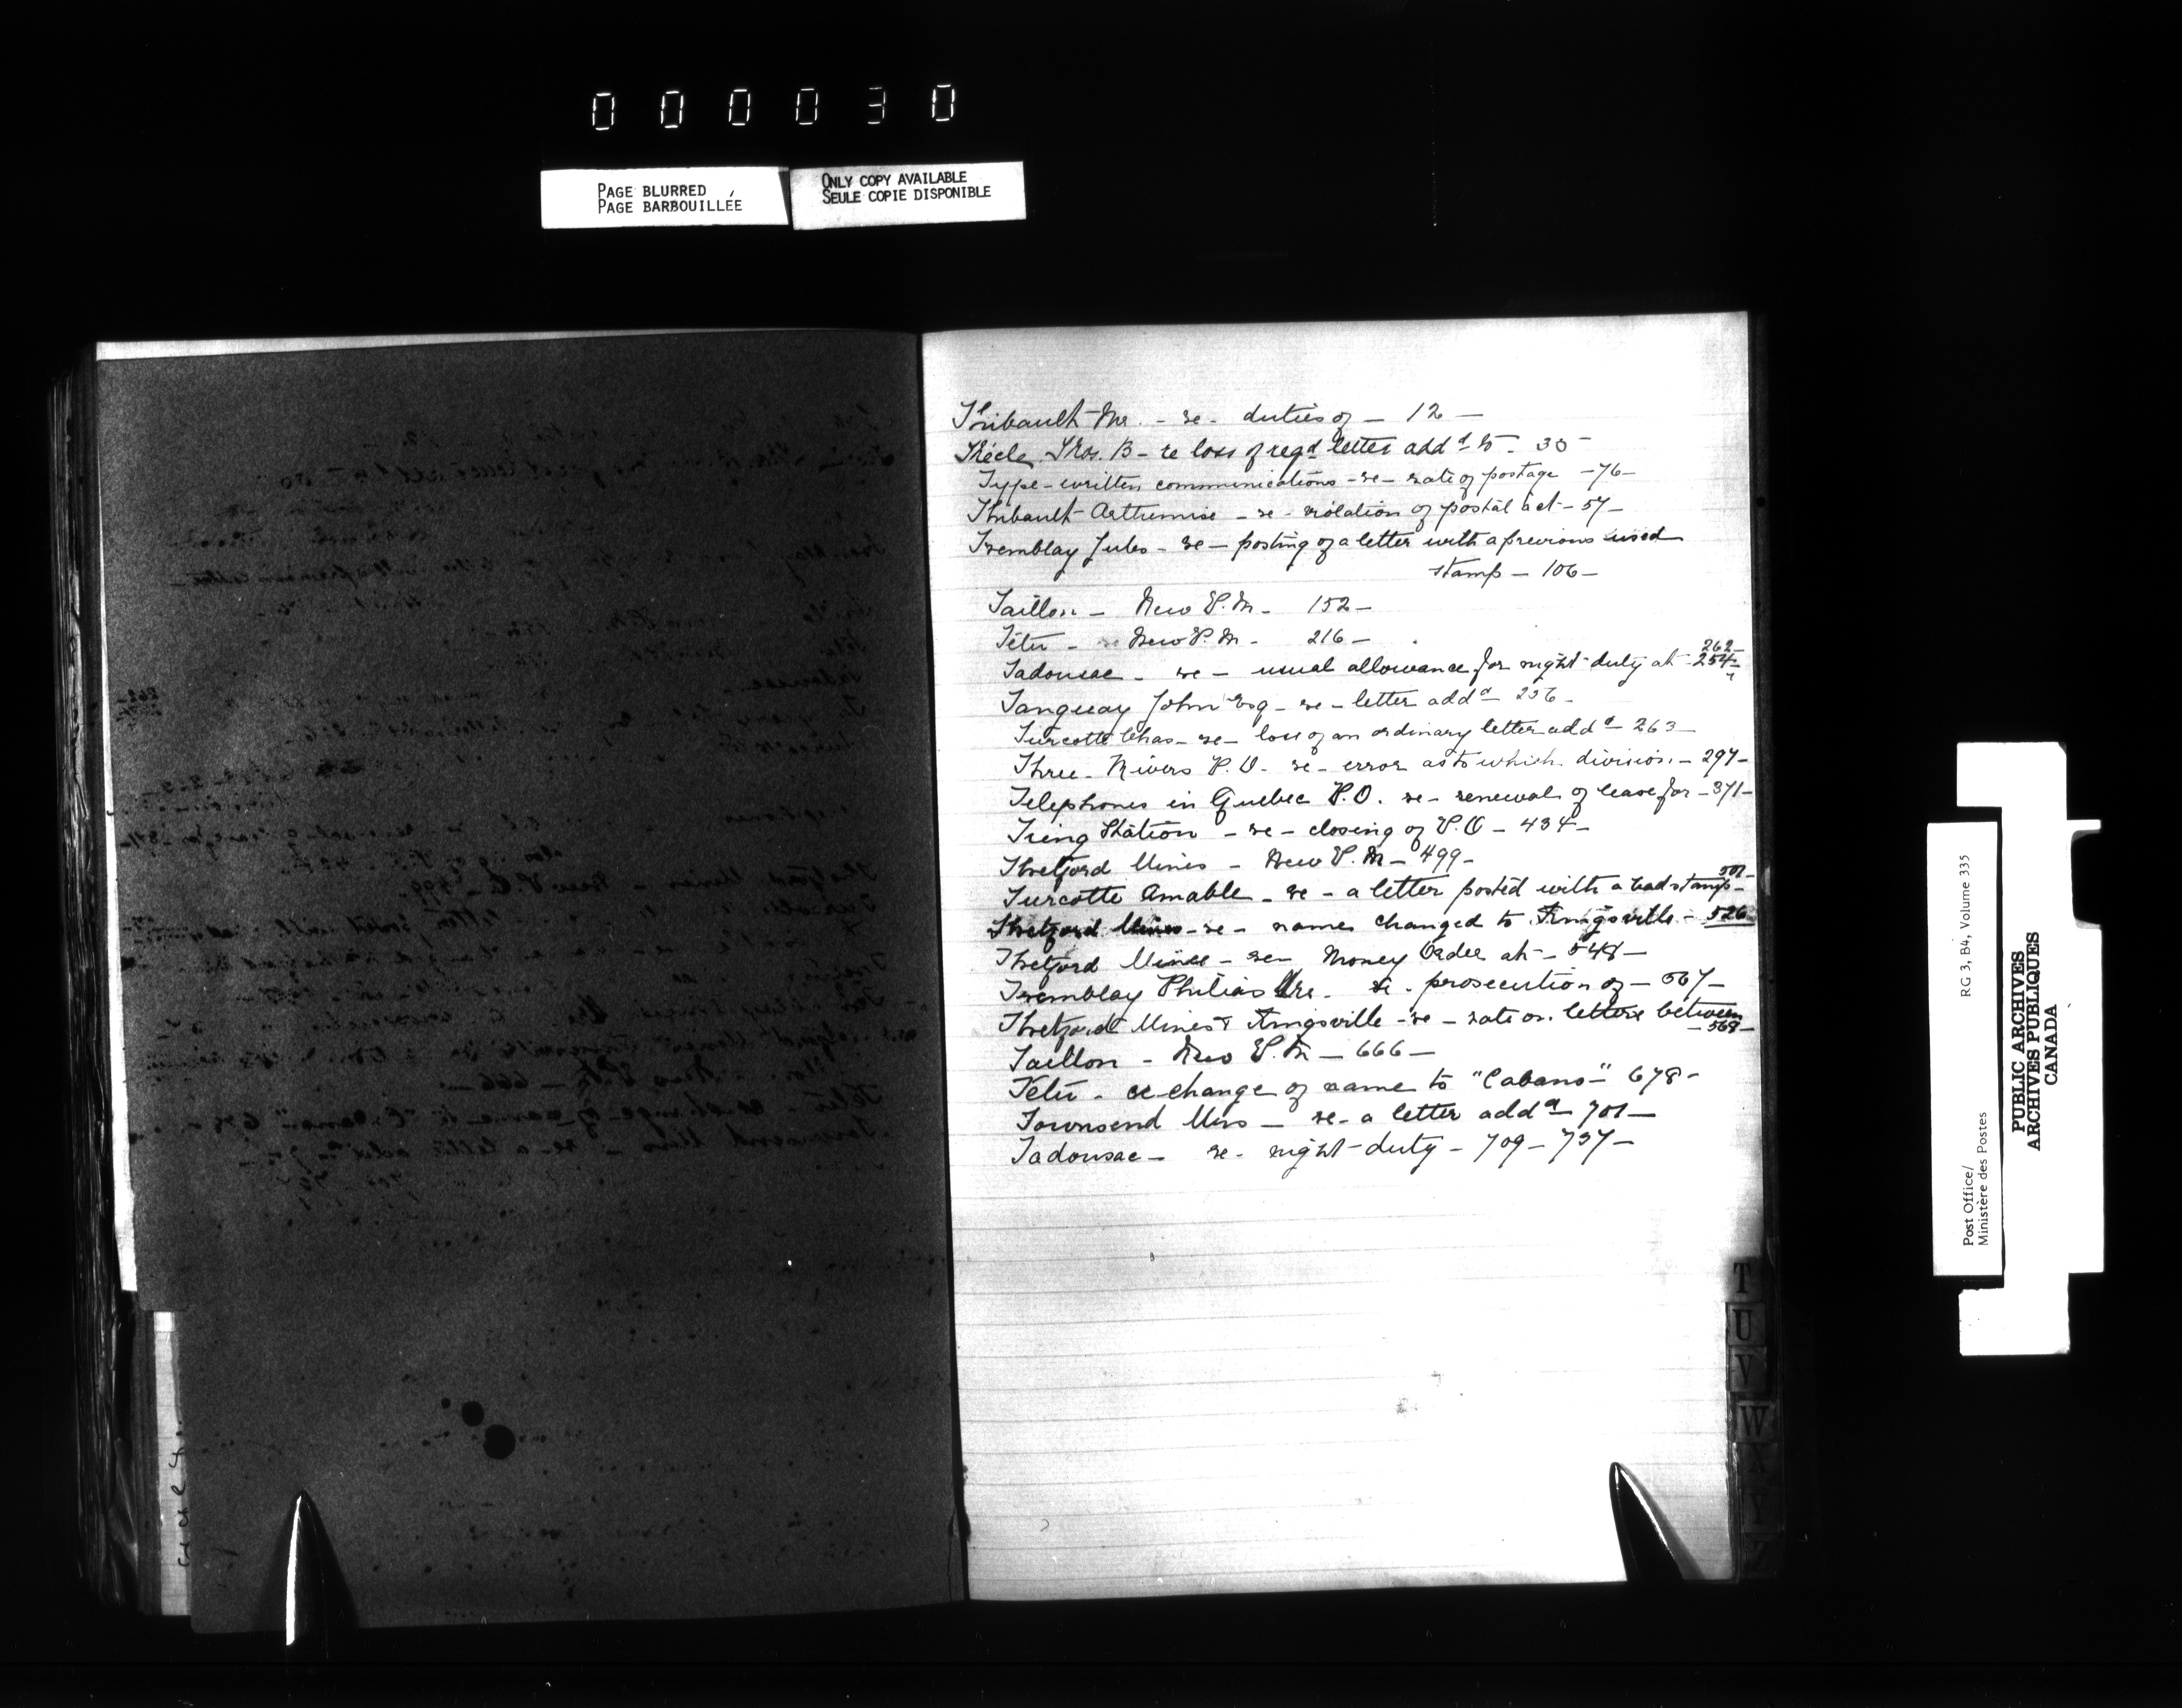 000030
PAGE BLURRED
PAGE BARBOUILLÉE
ONLY COPY AVAILABLE
SEULE COPIE DISPONIBLE
Thibault Mr. - re - duties of - 12 -
Thos. B - re loss of regd letter addd to - 30 -
Type-written communications - re - rate of postage - 76 -
Thibault Arthemise - re - violation of postal act - 57 -
Tremblay Jules - re - posting of a letter with a previous used
stamp - 106 -
Taillon - New P.M. - 152 -
Têtu - New P.M - 216 -
262 -
Tadousac - re - usual allowance for night-duty at - 254 -
Tanguay John Esq - re - letter addd 256 -
Turcotte Chas - re - loss of an ordinary letter addd - 263 -
Three-Rivers P.O. - re - error as to which division - 297 -
Telephones in Quebec P.O. re - renewal of lease for - 371 -
Tring Station - re - closing of P.O - 434 -
Thetford Mines - New P.M - 499 -
501 -
Turcotte Amable - re - a letter posted with a bad stamp -
Thetford Mines - re - name changed to Kingsville - 526
Thetford Mines - re - Money Order at - 548 -
Tremblay Philias re - prosecution of - 567 -
Thetford Mines & Kingsville - re - rate on letters between
- 568 -
Taillon - New P.M - 666 -
Têtu - re change of name to "Cabano" 678 -
Townsend Mrs - re - a letter addd 701 -
Tadousac - re - night-duty - 709 - 737 -
T
U
V
W
X
Y
Z
Post Office/
Ministère des Postes
RG 3, B4, Volume 335
PUBLIC ARCHIVES
ARCHIVES PUBLIQUES
CANADA